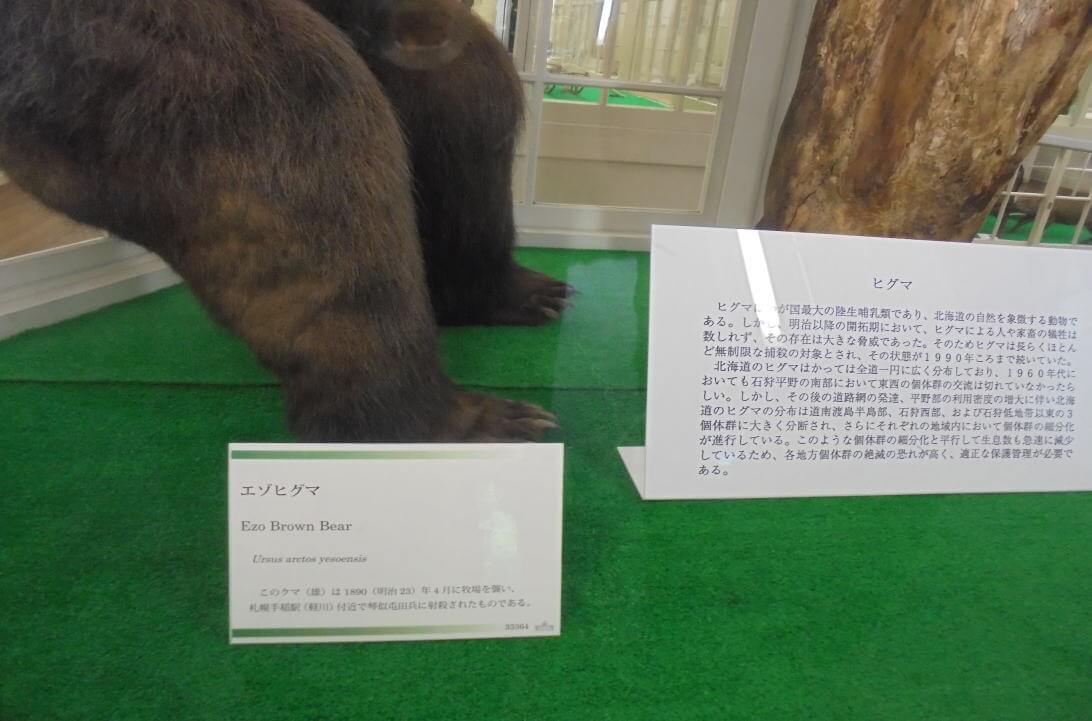 エゾヒグマ
Ezo Brown Bear
Ursus arctos yesoensis
このクマ（雄）は1890（明治23）年4月に牧場を襲い、
札幌手稲駅（軽川）付近で琴似屯田兵に射殺されたものである。
33364
ヒグマ
ヒグマは が国最大の陸生哺乳類であり、北海道の自然を象徴する動物で
ある。しかし、明治以降の開拓期において、ヒグマによる人や家畜の犠牲は
数しれず、その存在は大きな脅威であった。そのためヒグマは長らくほとん
ど無制限な捕殺の対象とされ、その状態が１９９０年ころまで続いていた。
北海道のヒグマはかっては全道一円に広く分布しており、１９６０年代に
おいても石狩平野の南部において東西の個体群の交流は切れていなかったら
しい。しかし、その後の道路網の発達、平野部の利用密度の増大に伴い北海
道のヒグマの分布は道南渡島半島部、石狩西部、および石狩低地帯以東の３
個体群に大きく分断され、さらにそれぞれの地域内において個体群の細分化
が進行している。このような個体群の細分化と平行して生息数も急速に減少
しているため、各地方個体群の絶滅の恐れが高く、適正な保護管理が必要で
ある。